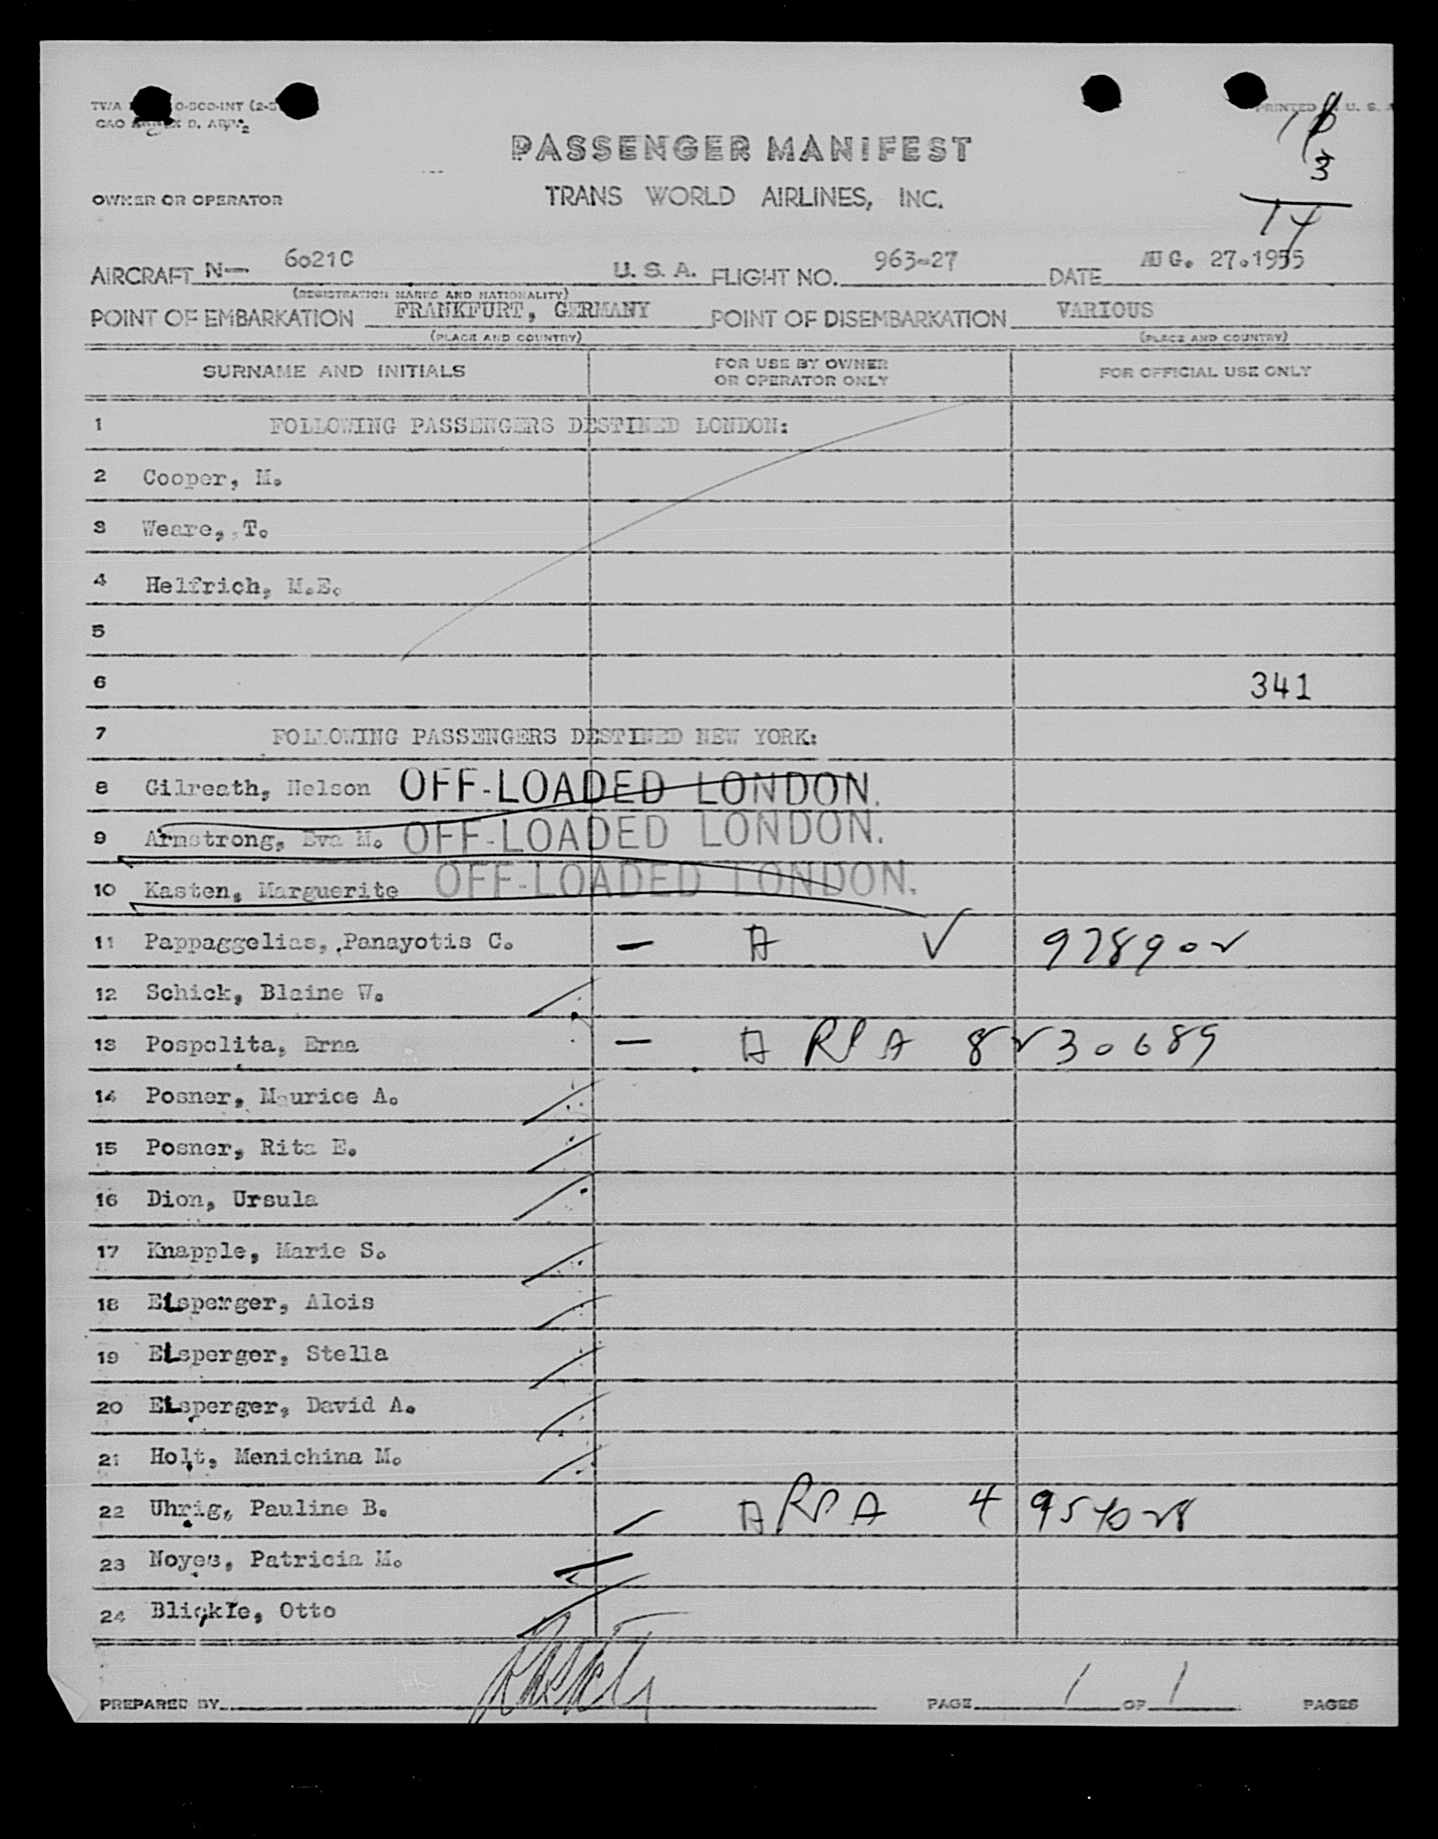 PRINTED U. S.
PASSENGER MANIFEST
3
OWNER OR OPERATOR TRANS WORLD AIRLINES, INC.
14
AIRCRAFT N— 6021C U. S. A. FLIGHT NO. 963-27 DATE AUG. 27.1955
(REGISTRATION MARKS AND NATIONALITY)
POINT OF EMBARKATION FRANKFURT, GERMANY POINT OF DISEMBARKATION VARIOUS
(PLACE AND COUNTRY) (PLACE AND COUNTRY)
SURNAME AND INITIALS FOR USE BY OWNER OR OPERATOR ONLY FOR OFFICIAL USE ONLY
1 FOLLOWING PASSENGERS DESTINED LONDON:
2 Cooper, M.
3 Weare, T.
4 Helfrich, M.E.
5
6 341
7 FOLLOWING PASSENGERS DESTINED NEW YORK:
8 Gilreath, Nelson OFF-LOADED LONDON.
9 Armstrong, Eva M. OFF-LOADED LONDON.
10 Kasten, Marguerite OFF-LOADED LONDON.
11 Pappaggelias, Panayotis C. — A ✓
12 Schick, Blaine W.
13 Pospolita, Erna — A
14 Posner, Maurice A.
15 Posner, Rita E.
16 Dion, Ursula
17 Knapple, Marie S.
18 Eisperger, Alois
19 Eisperger, Stella
20 Eisperger, David A.
21 Holt, Menichina M.
22 Uhrig, Pauline B. A
23 Noyes, Patricia M.
24 Blickle, Otto
PREPARED BY PAGE 1 OF 1 PAGES